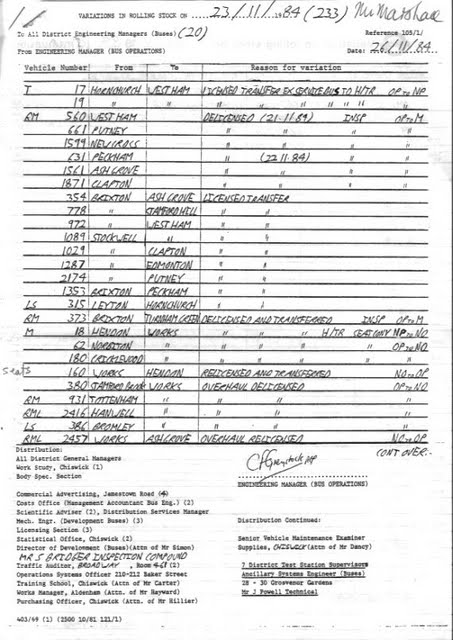 VARIATIONS IN ROLLING STOCK ON 23/11/1984 (233) Mr Marshall
To All District Engineering Managers (Buses) (20) Reference 105/1/
From ENGINEERING MANAGER (BUS OPERATIONS) Date: 26/11/84
Vehicle Number From To Reason for variation
T 17 HORNCHURCH WEST HAM LICENSED TRANSFER EX SERVICE BUS TO H/TR OP TO NP
19 " " " " " " " " "
RM 560 WEST HAM DELICENSED (21-11-84) INSP OP TO M
661 PUTNEY " " "
1599 NEW CROSS " " "
631 PECKHAM " (22 11.84) " "
1561 ASH GROVE " " "
1871 CLAPTON " " "
354 BRIXTON ASH GROVE LICENSED TRANSFER
778 " STAMFORD HILL " "
972 " WEST HAM " "
1089 STOCKWELL " " "
1029 " CLAPTON " "
1287 " EDMONTON " "
2174 " PUTNEY " "
1353 BRIXTON PECKHAM " "
LS 315 LEYTON HORNCHURCH " "
RM 373 BRIXTON TURNHAM GREEN DELICENSED AND TRANSFERRED INSP OP TO M
M 18 HENDON WORKS " " " H/TR SEAT CONV NP TO NO
62 NORBITON " " " " OP TO NO
180 CRICKLEWOOD " " " " "
seats 160 WORKS HENDON RELICENSED AND TRANSFERRED NO TO OP
380 STAMFORD BROOK WORKS OVERHAUL DELICENSED OP TO NO
RM 931 TOTTENHAM " " " "
RML 2416 HANWELL " " " "
LS 386 BROMLEY " " " "
RML 2457 WORKS ASH GROVE OVERHAUL RELICENSED NO TO OP
CONT OVER:-
Distribution:
All District General Managers
Work Study, Chiswick (1)
Body Spec. Section
ENGINEERING MANAGER (BUS OPERATIONS)
Commercial Advertising, Jamestown Road (4)
Costs Office (Management Accountant Bus Eng.) (2)
Scientific Adviser (2), Distribution Services Manager
Mech. Engr. (Development Buses) (3) Distribution Continued:
Licensing Section (3)
Statistical Office, Chiswick (2) Senior Vehicle Maintenance Examiner
Director of Development (Buses)(Attn of Mr Simon) Supplies, CHISWICK (Attn of Mr Dancy)
MR S BRIDGER INSPECTION COMPOUND
Traffic Auditor, BROADWAY, Room 461 (2) 7 District Test Station Supervisors
Operations Systems Officer 210-212 Baker Street Ancillary Systems Engineer (Buses)
Training School, Chiswick (Attn of Mr Carter) 28 - 30 Grosvenor Gardens
Works Manager, Aldenham (Attn of Mr Hayward) Mr J Powell Technical
Purchasing Officer, Chiswick (Attn of Mr Hillier)
403/49 (1) (2500 10/81 121/1)